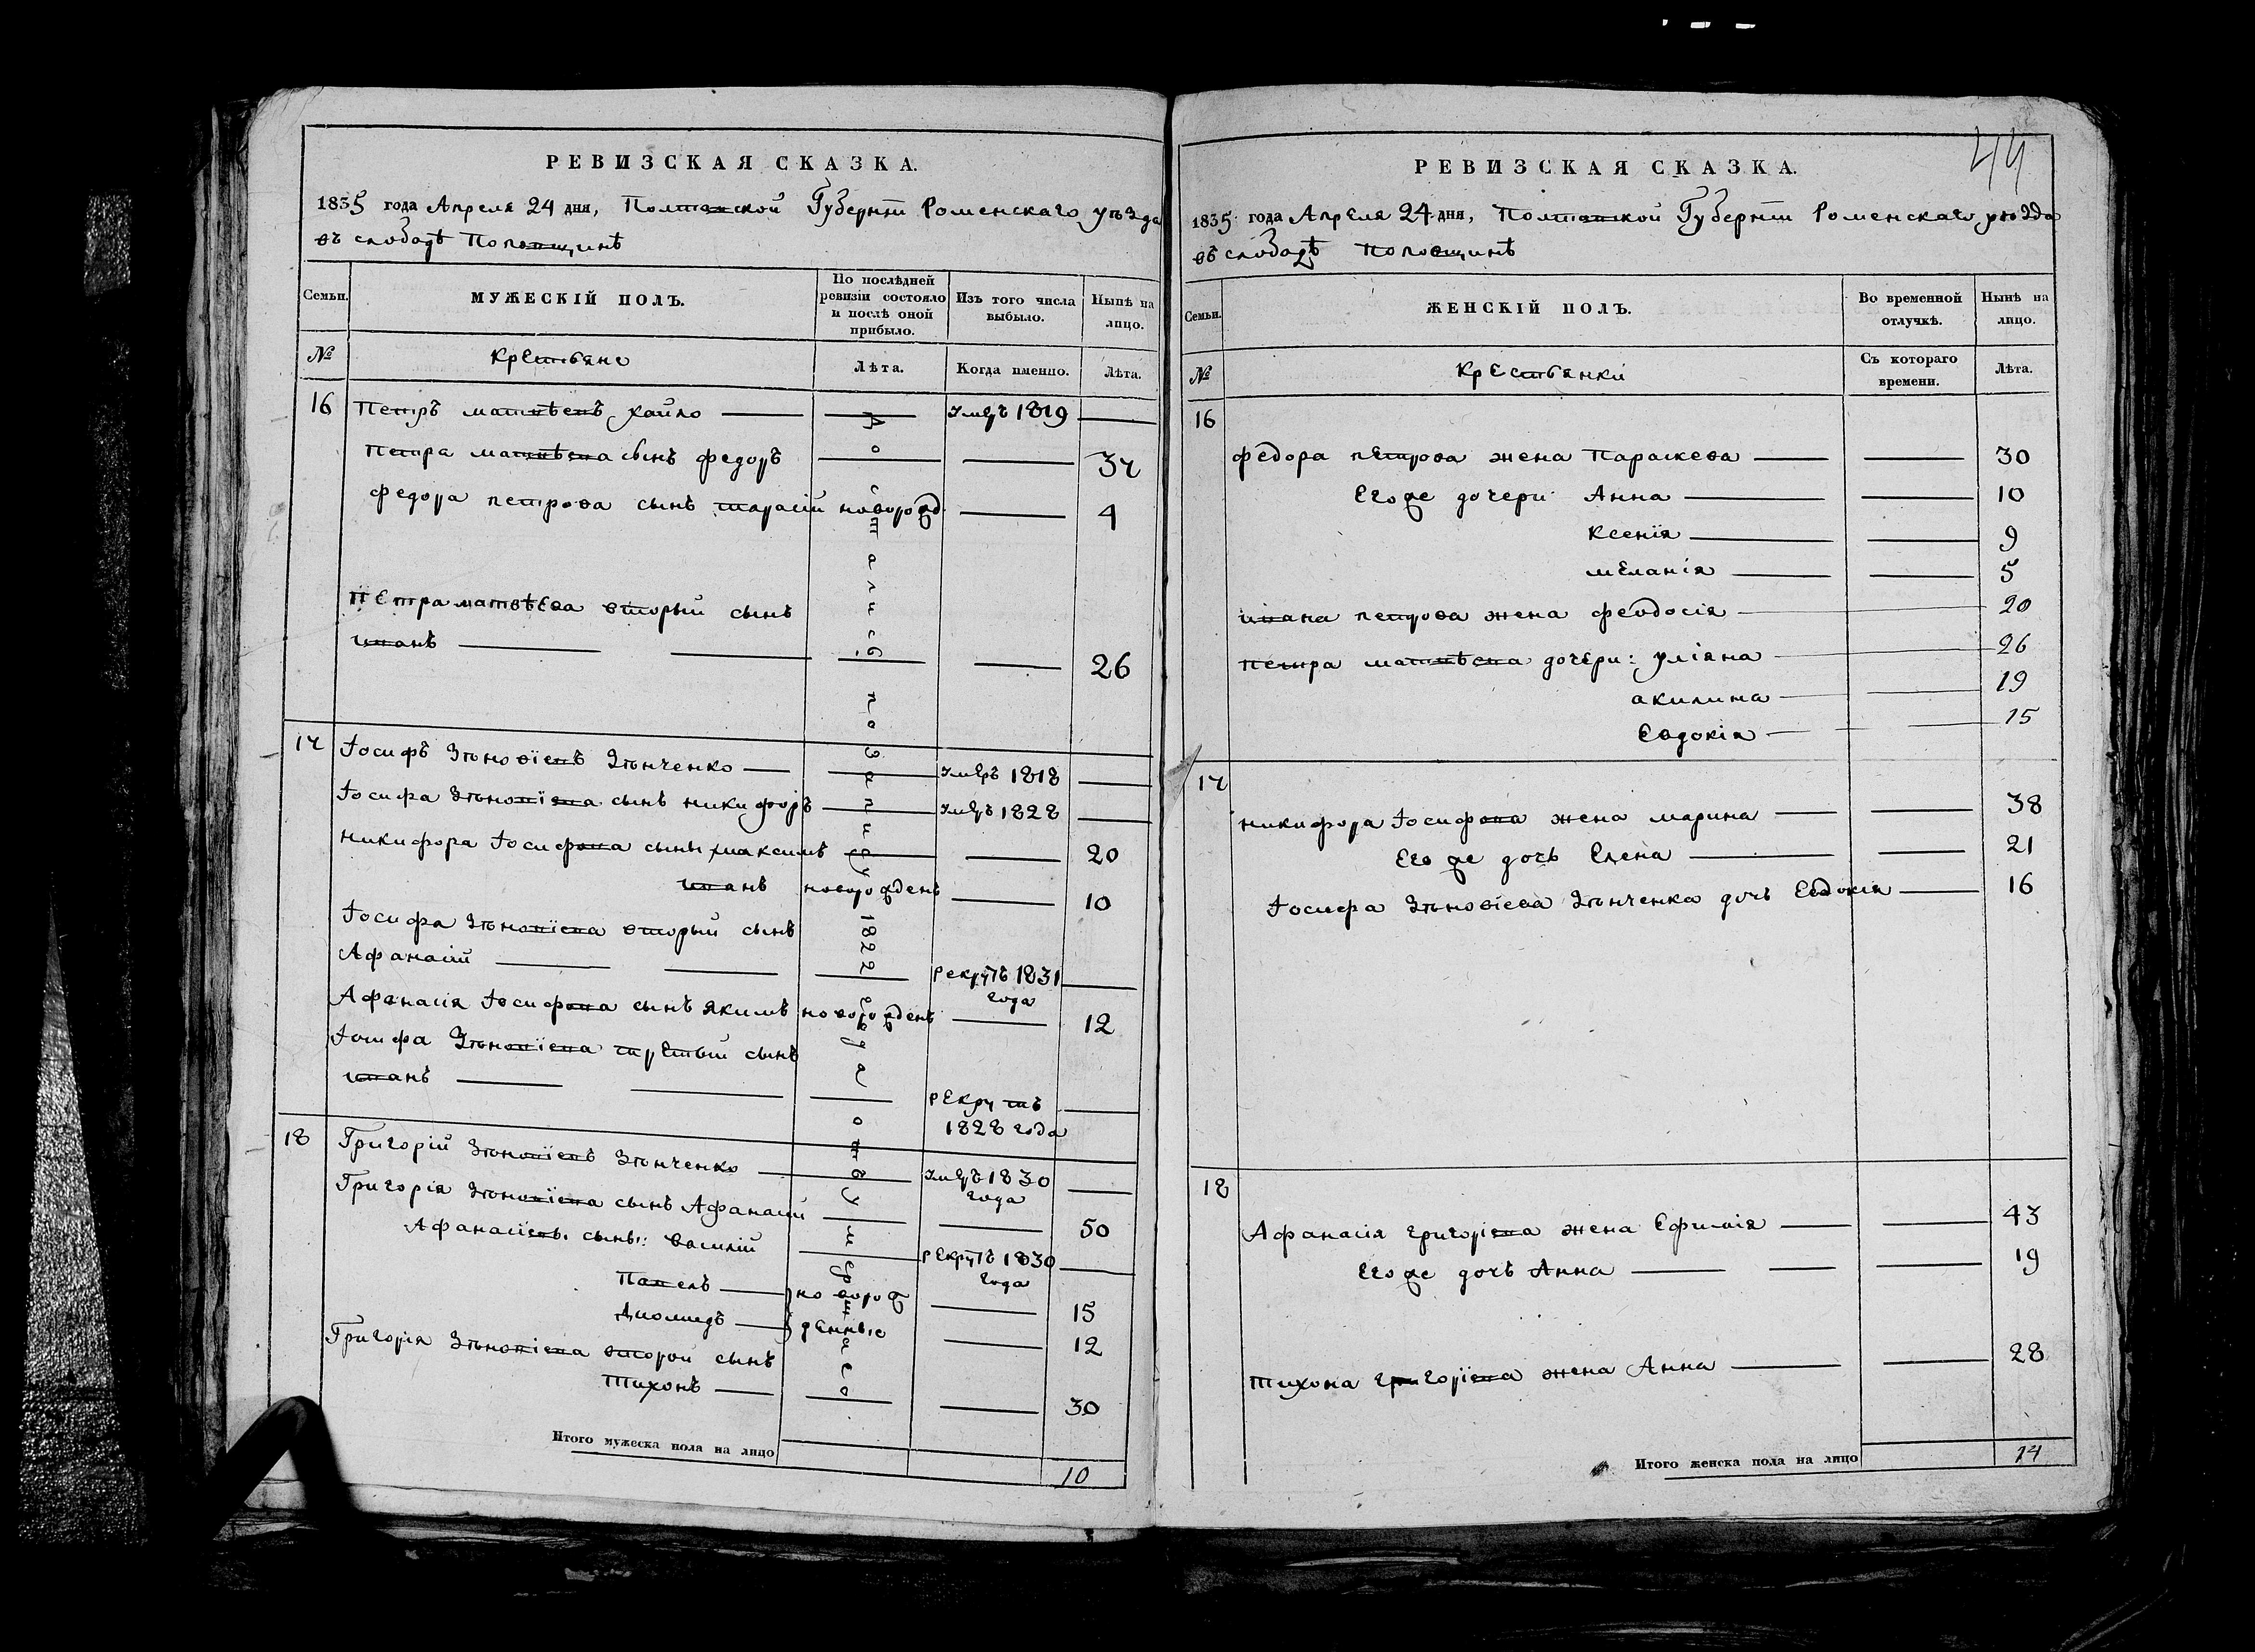 44
РЕВИЗСКАЯ СКАЗКА.
1835 года Апреля 24 дня, Полтавской Губернiи Роменскаго уѣзда
въ слободѣ Поповщинѣ
Семьи. МУЖЕСКIЙ ПОЛЪ. По послѣдней ревизiи состояло и послѣ оной прибыло. Изъ того числа выбыло. Нынѣ на лицо.
№ Крестьяне Лѣта. Когда именно. Лѣта.
16 Петръ матвѣевъ хайло — — умеръ 1819 —
Петра матвѣева сынъ федоръ — — 37
федора петрова сынъ тарасiй новорожд. — 4
Петра матвѣева вторый сынъ
иванъ — — — — 26
17 Iосифъ Зѣновiевъ Зѣнченко — — умеръ 1818 —
Iосифа Зѣновiева сынъ никифоръ — умеръ 1828 —
никифора Iосифова сыны максимъ — — 20
иванъ новорожденъ — 10
Iосифа Зѣновiева вторый сынъ
Афанасiй — — — рекрутъ 1831 года —
Афанасiя Iосифова сынъ якимъ новорожденъ — 12
Iосифа Зѣновiева третый сынъ
иванъ — — — рекрутъ 1828 года —
18 Григорiй Зѣновiевъ Зѣнченко — — умеръ 1830 года —
Григорiя Зѣновiева сынъ Афанасiй — — 50
Афанасiевы сыны: Василiй — рекрутъ 1830 года —
Павелъ — новорож — 15
Диомидъ — денные — 12
Григорiя Зѣновiева второй сынъ
Тихонъ — — — 30
Итого мужеска пола на лицо 10
РЕВИЗСКАЯ СКАЗКА.
1835 года Апреля 24 дня, Полтавской Губернiи Роменскаго уѣзда
въ слободѣ Поповщинѣ
Семьи. ЖЕНСКIЙ ПОЛЪ. Во временной отлучкѣ. Нынѣ на лицо.
№ Крестьянки Съ котораго времени. Лѣта.
16
федора петрова жена Параскева — — 30
Его же дочери Анна — — 10
Ксенiя — — 9
меланiя — — 5
ивана петрова жена феодосiя — 20
Петра матвѣева дочери: улiяна — 26
акилина — 19
Евдокiя — 15
17
никифора Iосифова жена марина — — 38
Его же дочь Елена — — 21
Iосифа Зѣновiева Зѣнченка дочь Евдокiя — 16
18
Афанасiя григорiева жена Ефимiя — — 43
Его же дочь Анна — — — 19
Тихона григорiева жена Анна — — 28
Итого женска пола на лицо 14